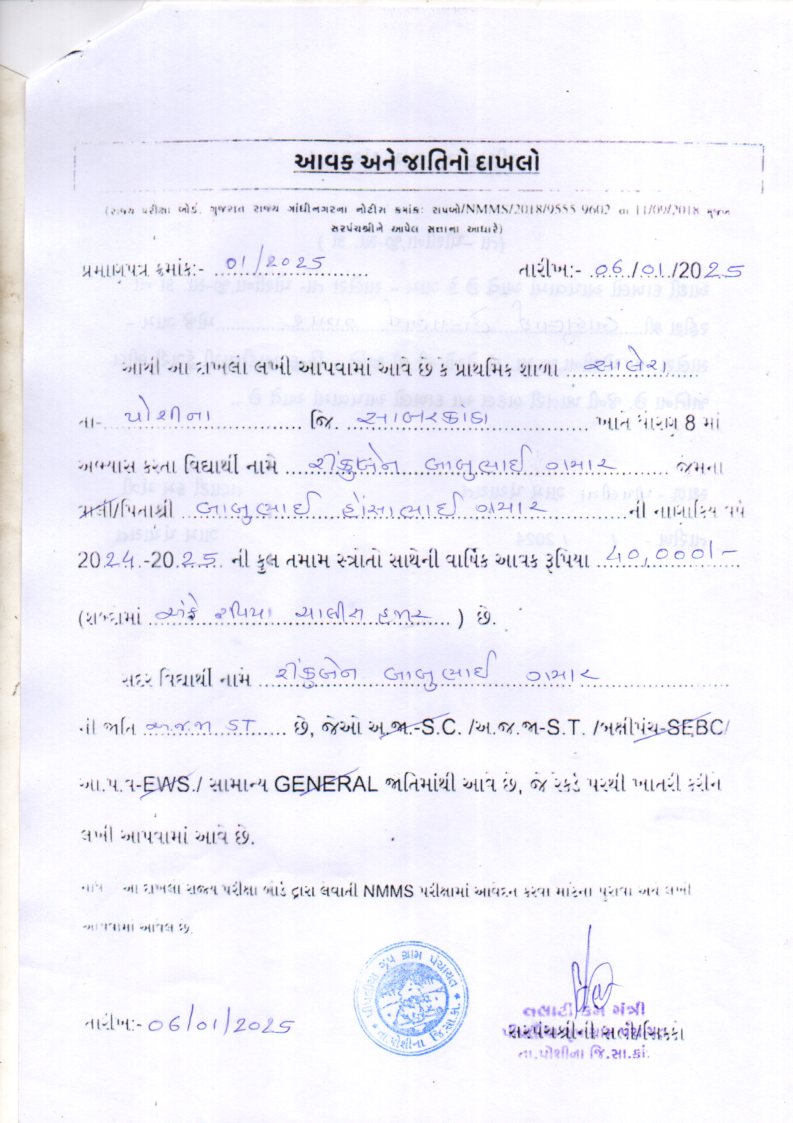 આવક અને જાતિનો દાખલો
(રાજ્ય પરીક્ષા બોર્ડ, ગુજરાત રાજ્ય ગાંધીનગરના નોટીસ ક્રમાંક: રાપબો/NMMS/2018/9555-9602 તા 11/09/2018 મુજબ
સરપંચશ્રીને આપેલ સત્તાના આધારે)
પ્રમાણપત્ર ક્રમાંક:- 01/2025 તારીખ:- 06/01/2025
આથી આ દાખલો લખી આપવામાં આવે છે કે પ્રાથમિક શાળા સાલેરા
તા- પોશીના જિ. સાબરકાંઠા ખાતે ધોરણ 8 માં
અભ્યાસ કરતા વિદ્યાર્થી નામે રીંકુબેન બાબુભાઈ ગમાર જેમના
વાલી/પિતાશ્રી બાબુભાઈ હોંસાભાઈ ગમાર ની નાણાકિય વર્ષ
2024-2025 ની કુલ તમામ સ્ત્રોતો સાથેની વાર્ષિક આવક રૂપિયા 40,000/-
(શબ્દોમાં અંકે રૂપિયા ચાલીસ હજાર ) છે.
સદર વિદ્યાર્થી નામે રીંકુબેન બાબુભાઈ ગમાર
ની જાતિ અ.જ.જા ST છે, જેઓ અ.જા.-S.C. /અ.જ.જા-S.T. /બક્ષીપંચ-SEBC/
આ.પ.વ-EWS./ સામાન્ય GENERAL જાતિમાંથી આવે છે, જે રેકર્ડ પરથી ખાતરી કરીને
લખી આપવામાં આવે છે.
નોંધ આ દાખલો રાજ્ય પરીક્ષા બોર્ડ દ્વારા લેવાતી NMMS પરીક્ષામાં આવેદન કરવા માટેના પુરાવા અર્થે લખી
આપવામાં આવેલ છે.
તારીખ:- 06/01/2025
તલાટી કમ મંત્રી
સરપંચશ્રીની સહી/સિક્કો
તા.પોશીના જિ.સા.કાં.